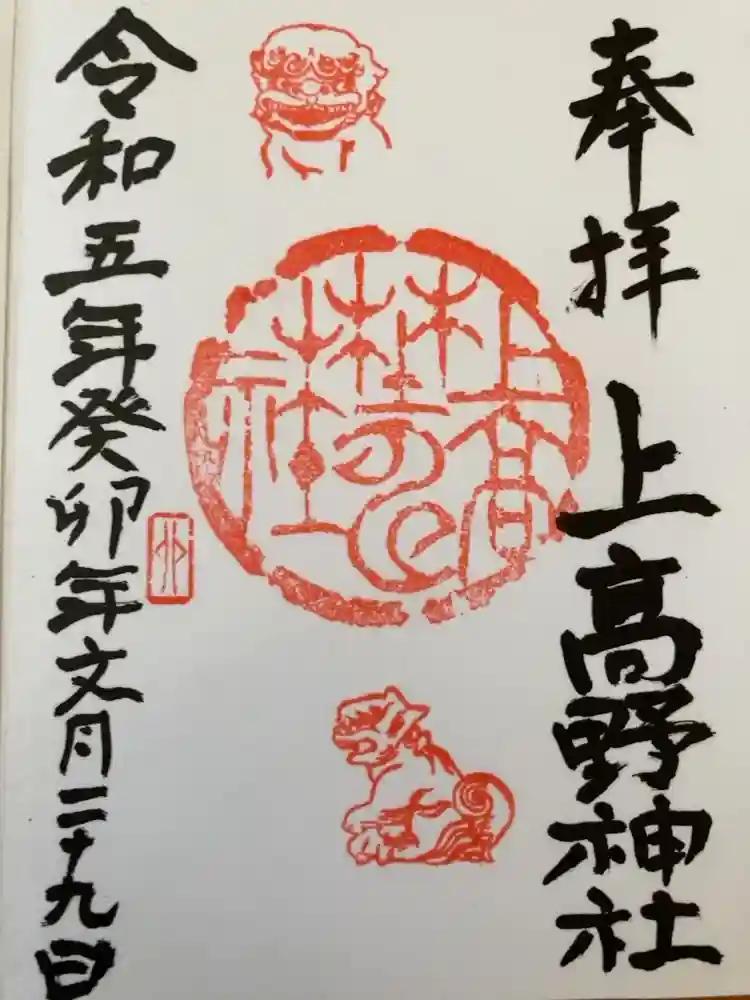 奉拝 上高野神社
令和五年癸卯年文月二十九日